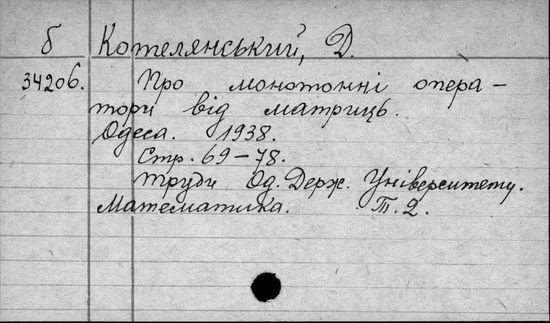 б Котелянський, Д.
34206. Про монотонні опера-
тори від матриць.
Одеса. 1938.
Стр. 69-78.
Труди Од. Держ. Університету.
Математика. Т. 2.